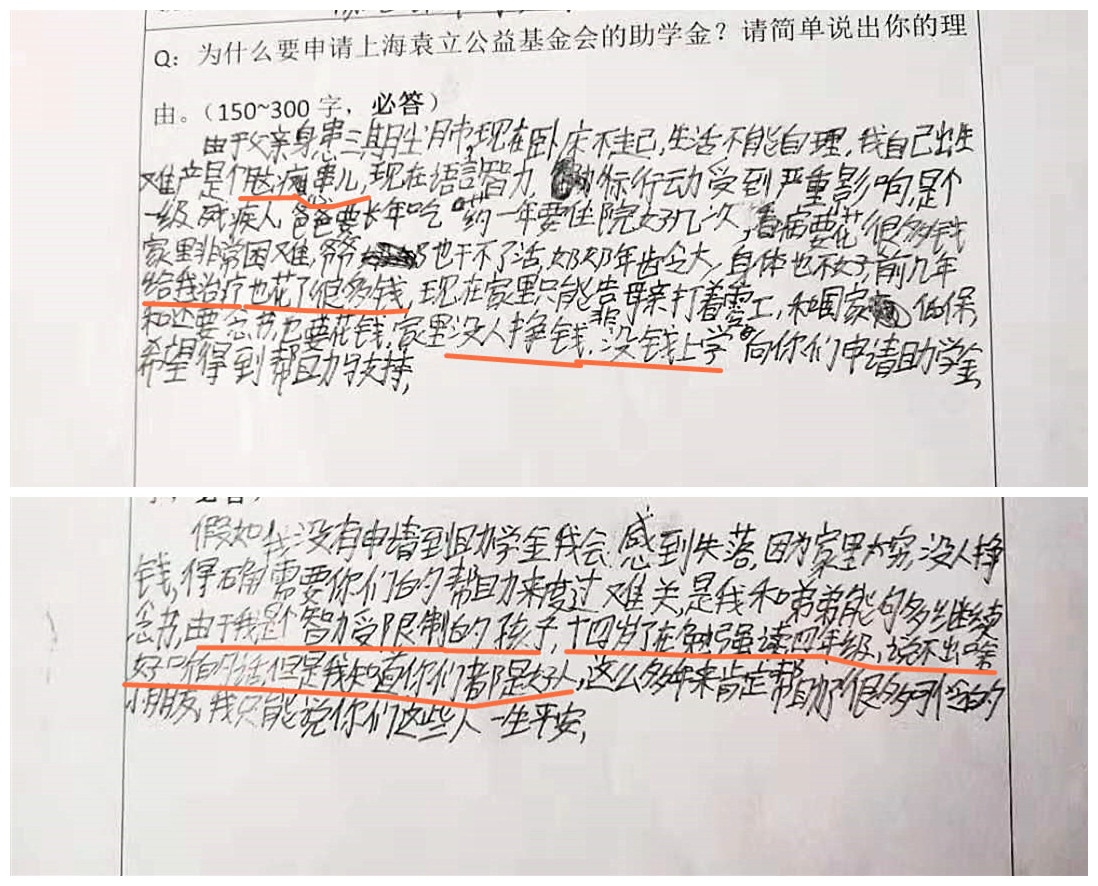 Q：为什么要申请上海袁立公益基金会的助学金？请简单说出你的理
由。（150~300 字，必答）
由于父亲身患三期尘肺,现在卧床不起,生活不能自理,我自己出生
难产是个脑病患儿,现在语言智力 行动受到严重影响,是个
一级残疾人,爸爸要长年吃药一年要住院好几次,看病要花很多钱
家里非常困难,爷爷 也干不了活,奶奶年齿令大,身体也不好前几年
给我治疗也花了很多钱,现在家里只能告母亲打着零工,和国家 低保,
和还要念书也要花钱,家里没人挣钱,没钱上学 向你们申请助学金,
希望得到帮助与支持,
假如我没有申请到助学金我会感到失落,因为家里太穷,没人挣
钱,得确需要你们的帮助来度过难关,是我和弟弟能够多继续
念书,由于我是个智力受限制的孩子,十四岁了在勉强读四年级,说不出啥
好 的话但是我知道你们都是好人,这么多年来肯定帮助了很多可怜的
小朋友,我只能说你们这些人一生平安,